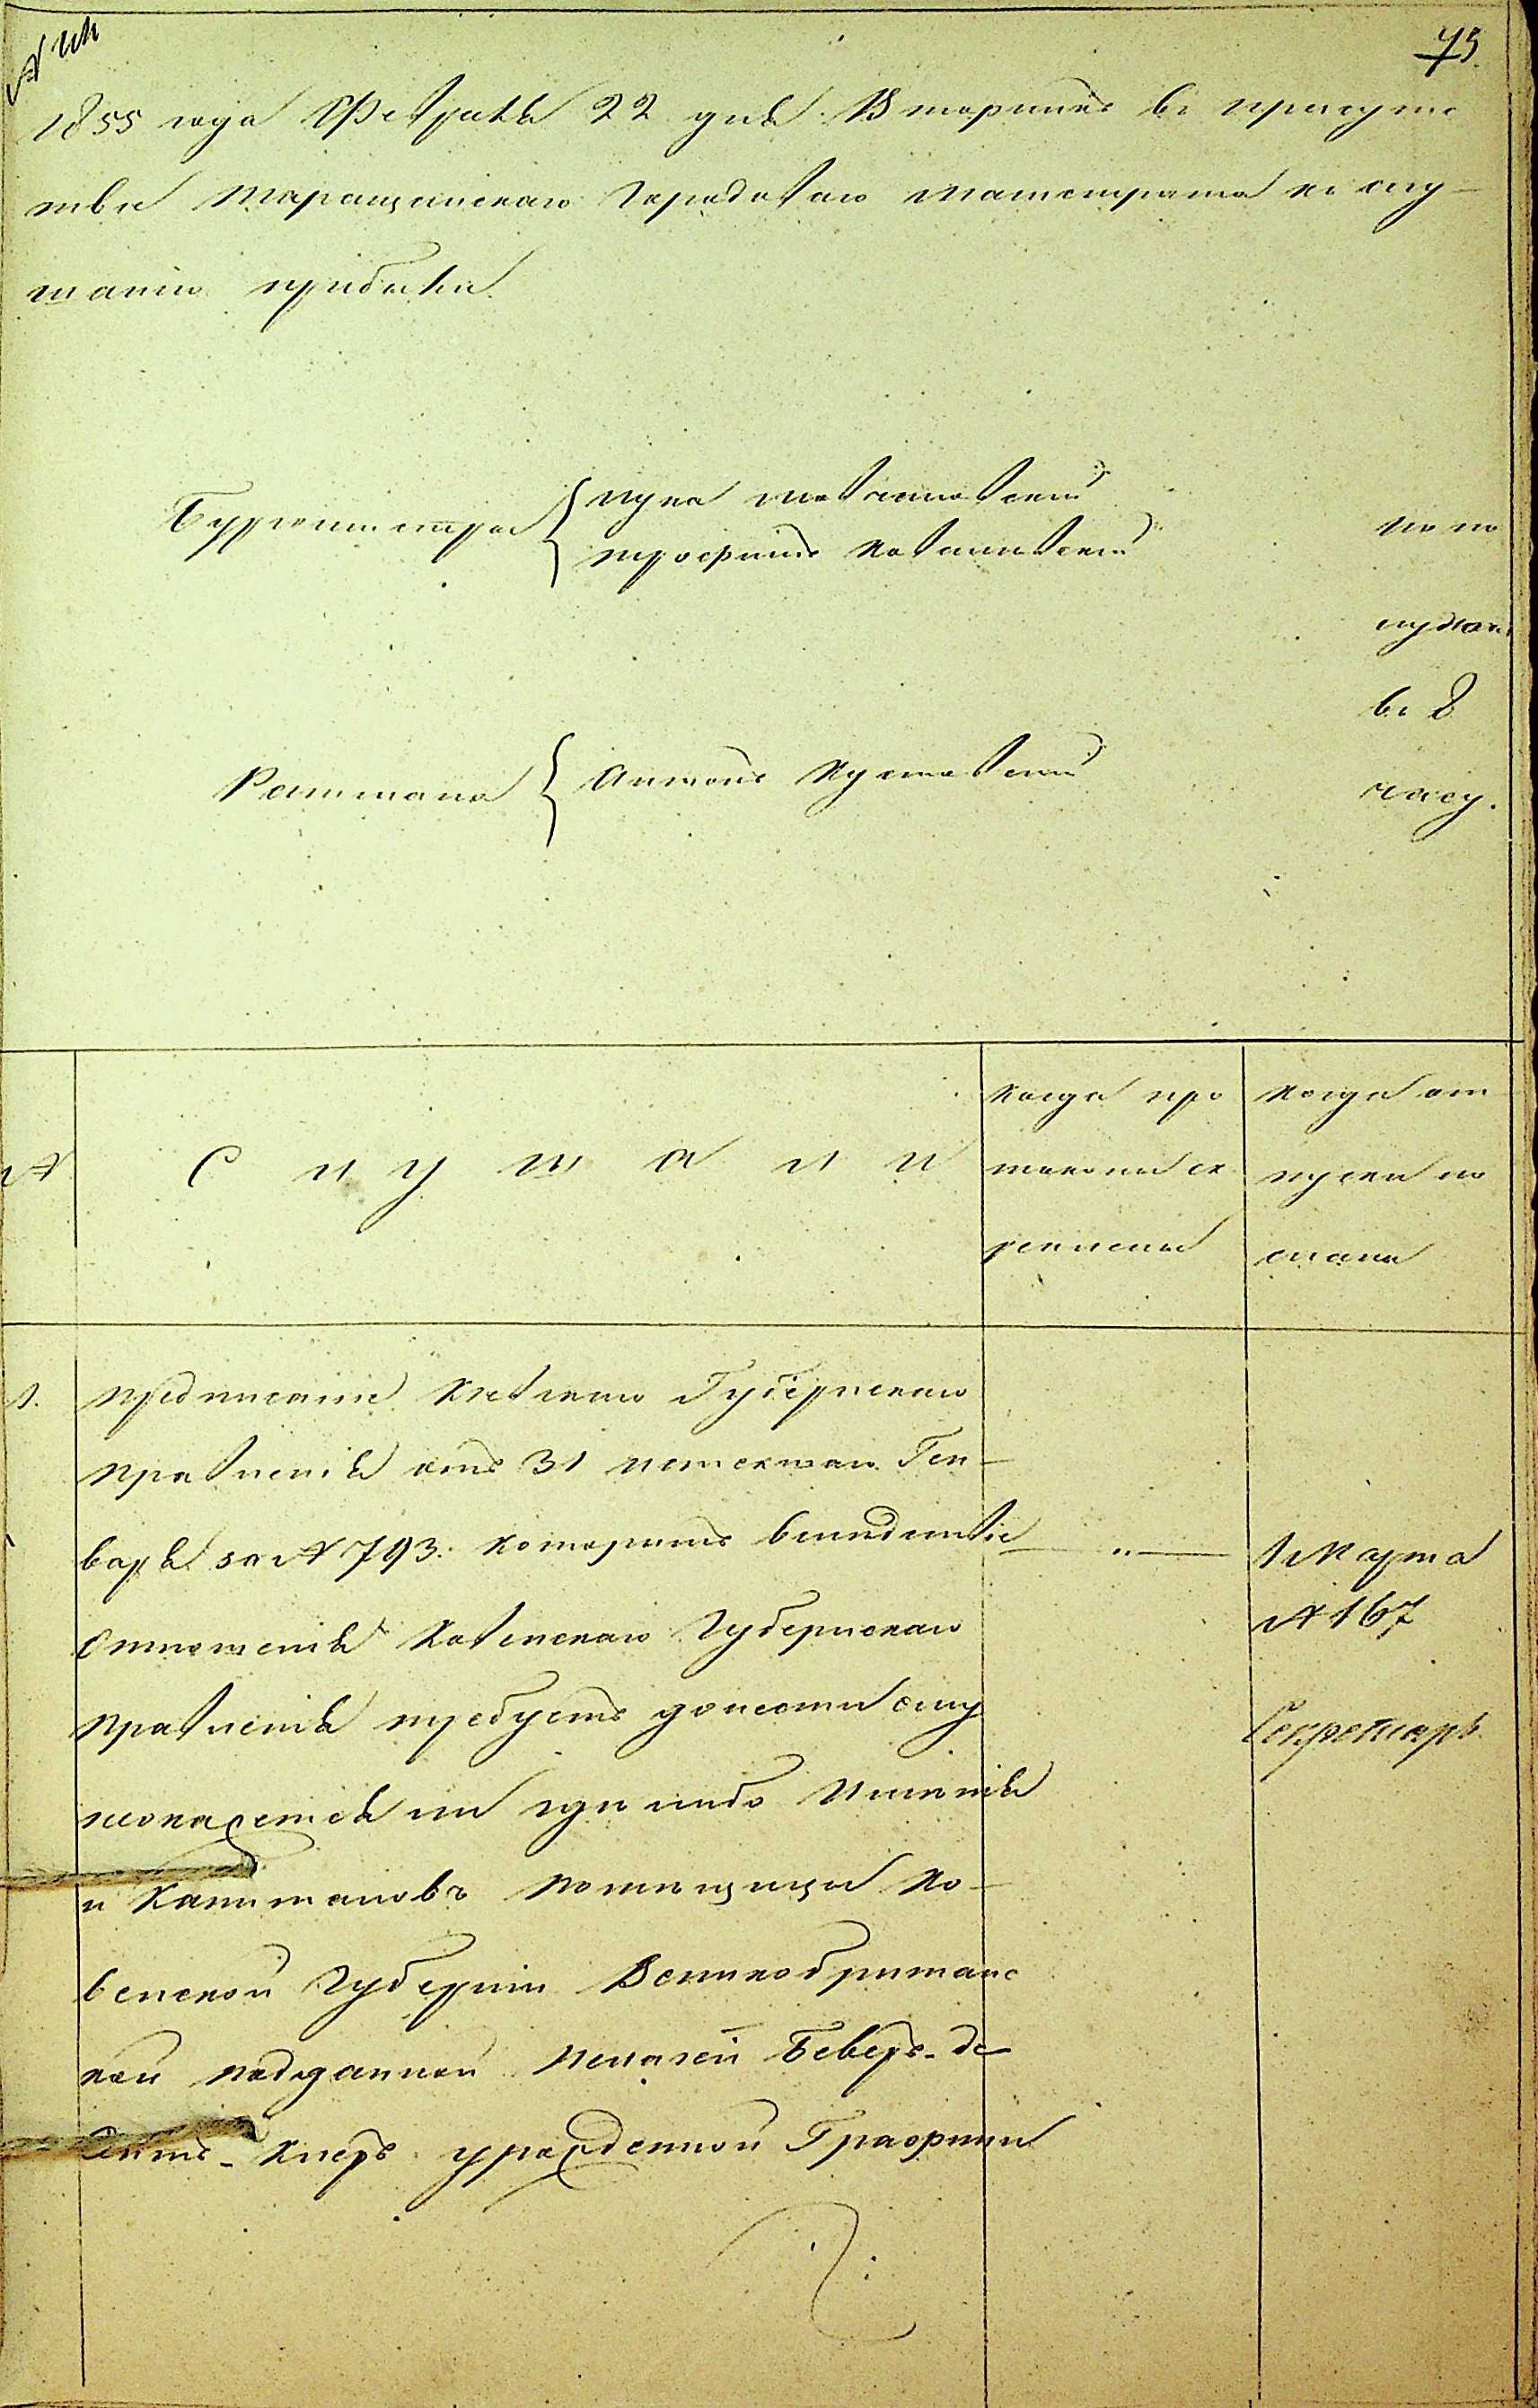 75.
1855 года Февраля 22 дня Вторникъ въ присутс
твіи Таращанскаго Городоваго Магистрата къ слу-
шанію прибыли
Бургомистры
Лука
Трофимъ
по по
лудни
въ 8
часу.
Ратмана
Антонъ
№
С л у ш а л и
Когда про
токолы ск
реплены
Когда от
пуски по
сланы
1.
Предписаніе Кіевскаго Губернскаго
Правленія отъ 31 истекшаго Ген-
варя за № 793. которымъ вследствіе
Отношенія Ковенскаго Губернскаго
Правленія требуетъ донести ему
неокажется ли где либо Именія
и Капиталовъ помещицы Ко-
венской Губерніи Великобританс
кой подданной Беверъ-де
Сентъ-Клеръ урожденной Графини
1 Марта
№ 167
Секретарь